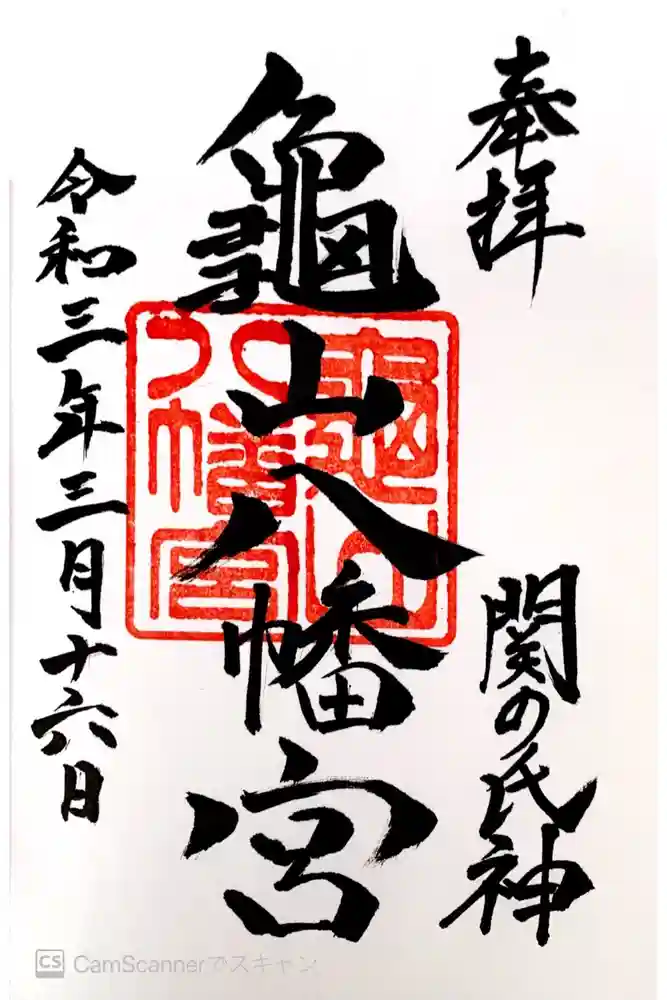 奉拝
関の氏神
龜山八幡宮
龜山八幡宮
令和三年三月十六日
CS CamScannerでスキャン